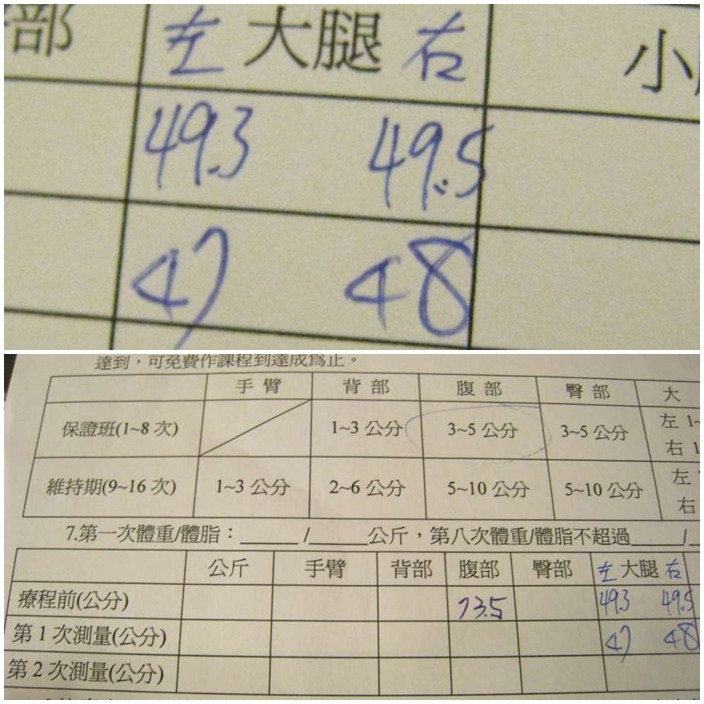 部 左 大腿 右 小
49.3 49.5
47 48
達到，可免費作課程到達成為止。
手臂 背部 腹部 臀部 大
保證班(1~8 次) 1~3 公分 3~5 公分 3~5 公分 左 1~
右 1
維持期(9~16 次) 1~3 公分 2~6 公分 5~10 公分 5~10 公分 左
右
7.第一次體重/體脂：______ /______公斤，第八次體重/體脂不超過_____/_
公斤 手臂 背部 腹部 臀部 左 大腿 右
療程前(公分) 73.5 49.3 49.5
第 1 次測量(公分) 47 48
第 2 次測量(公分)